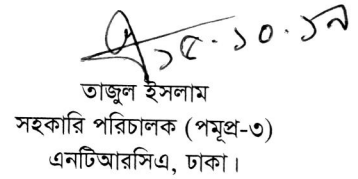 ১৫.১০.১৯
তাজুল ইসলাম
সহকারি পরিচালক (পমূপ্র-৩)
এনটিআরসিএ, ঢাকা।